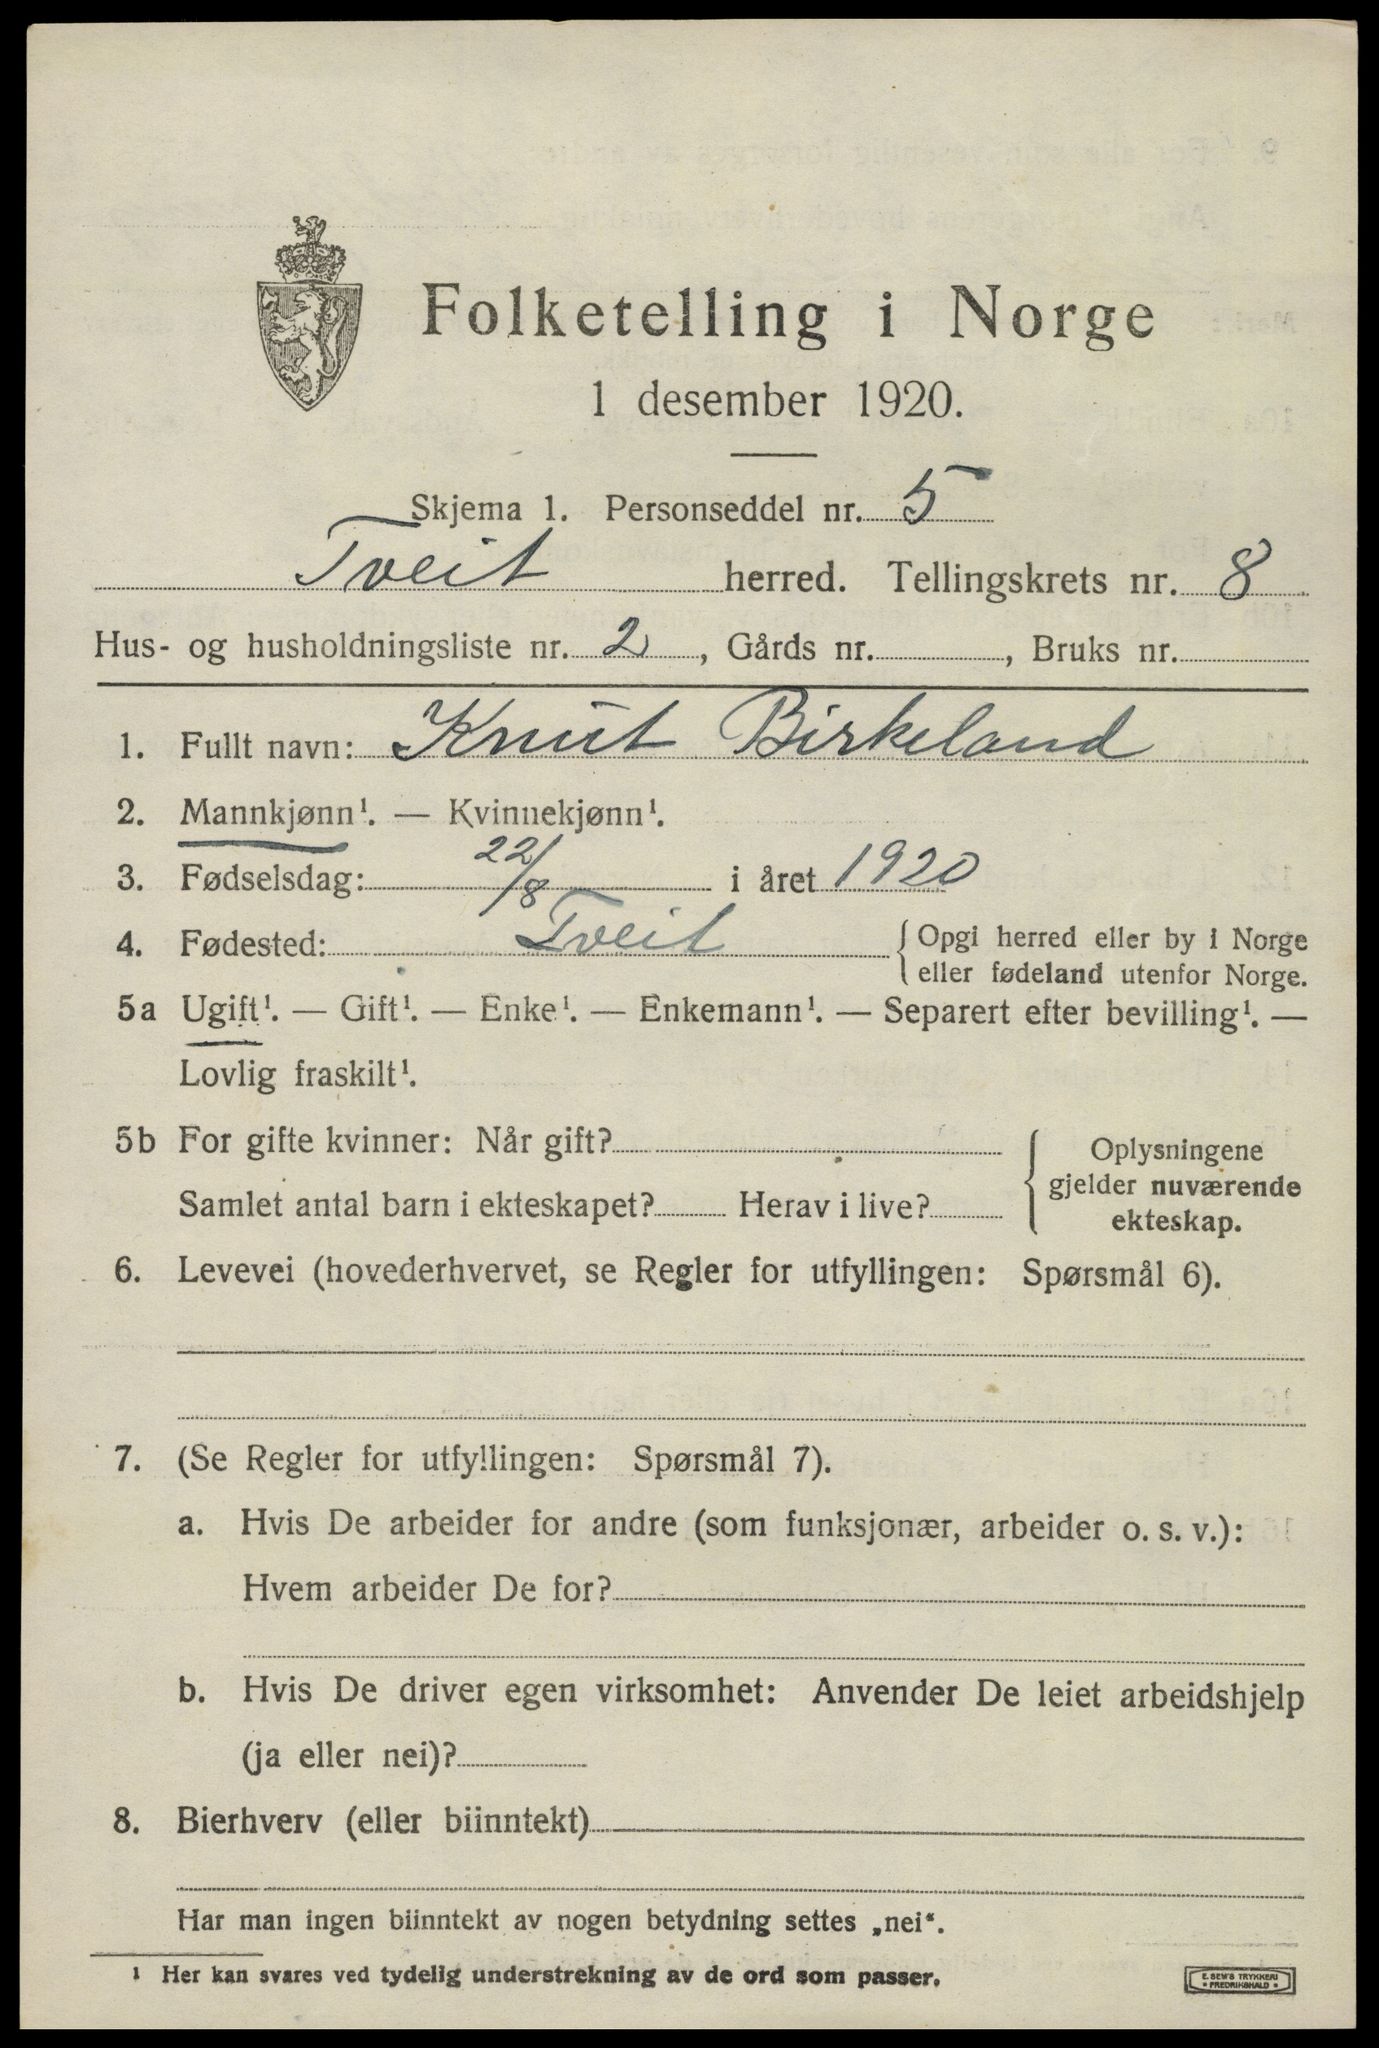 Folketelling i Norge
1 desember 1920.
Skjema 1. Personseddel nr. 5
Tveit herred. Tellingskrets nr. 8
Hus- og husholdningsliste nr. 2, Gårds nr. , Bruks nr.
1. Fullt navn: Knut Birkeland
2. Mannkjønn¹. — Kvinnekjønn¹.
3. Fødselsdag: 22/8 i året 1920
4. Fødested: Tveit { Opgi herred eller by i Norge
eller fødeland utenfor Norge.
5a Ugift¹. — Gift¹. — Enke¹. — Enkemann¹. — Separert efter bevilling¹. —
Lovlig fraskilt¹.
5b For gifte kvinner: Når gift?
Samlet antal barn i ekteskapet? Herav i live?
{ Oplysningene
gjelder nuværende
ekteskap.
6. Levevei (hovederhvervet, se Regler for utfyllingen: Spørsmål 6).
7. (Se Regler for utfyllingen: Spørsmål 7).
a. Hvis De arbeider for andre (som funksjonær, arbeider o. s. v.):
Hvem arbeider De for?
b. Hvis De driver egen virksomhet: Anvender De leiet arbeidshjelp
(ja eller nei)?
8. Bierhverv (eller biinntekt)
Har man ingen biinntekt av nogen betydning settes „nei“.
¹ Her kan svares ved tydelig understrekning av de ord som passer.
E. SEM'S TRYKKERI
• FREDRIKSHALD •